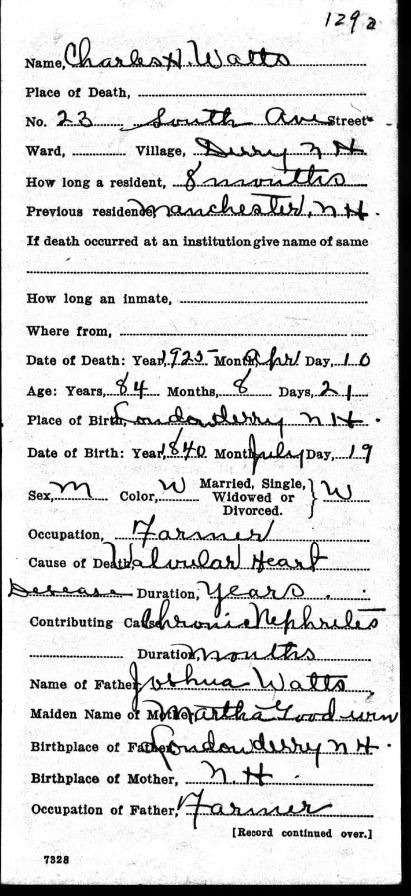 129 a
Name, Charles H. Watts
Place of Death,
No. 23 South Ave Street
Ward, Village, Derry N H
How long a resident, 8 months
Previous residence, Manchester, N. H.
If death occurred at an institution give name of same
How long an inmate,
Where from,
Date of Death: Year, 1925 Month, Apr Day, 10
Age: Years, 84 Months, 8 Days, 21
Place of Birth, Londonderry N H.
Date of Birth: Year, 1840 Month, July Day, 19
Sex, M Color, W Married, Single, Widowed or Divorced. } W
Occupation, Farmer
Cause of Death, Valvular Heart
Disease Duration, Years
Contributing Cause, Chronic Nephrites
Duration, months
Name of Father, Joshua Watts
Maiden Name of Mother, Martha Goodwin
Birthplace of Father, Londonderry N H.
Birthplace of Mother, N. H.
Occupation of Father, Farmer
[Record continued over.]
7328